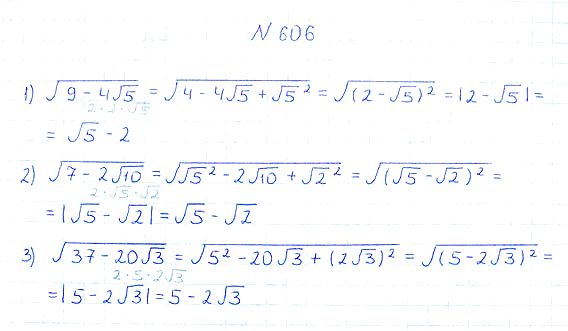 N 606
1) √(9 - 4√5) = √(4 - 4√5 + √5²) = √((2 - √5)²) = |2 - √5| =
2·2·√5
= √5 - 2
2) √(7 - 2√10) = √(√5² - 2√10 + √2²) = √((√5 - √2)²) =
2·√5·√2
= |√5 - √2| = √5 - √2
3) √(37 - 20√3) = √(5² - 20√3 + (2√3)²) = √((5 - 2√3)²) =
2·5·2√3
= |5 - 2√3| = 5 - 2√3